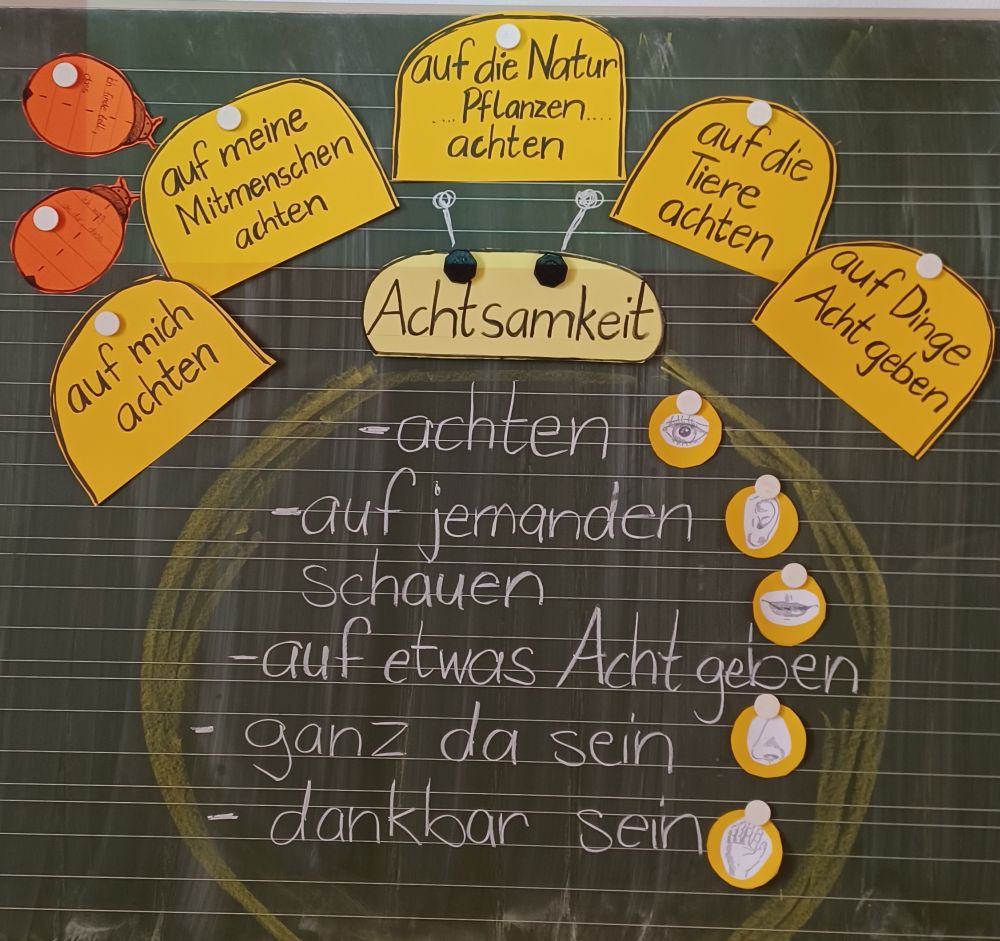 auf die Natur
.... Pflanzen ....
achten
auf meine
Mitmenschen
achten
auf die
Tiere
achten
auf mich
achten
auf Dinge
Acht geben
Achtsamkeit
- achten
- auf jemanden
schauen
- auf etwas Acht geben
- ganz da sein
- dankbar sein